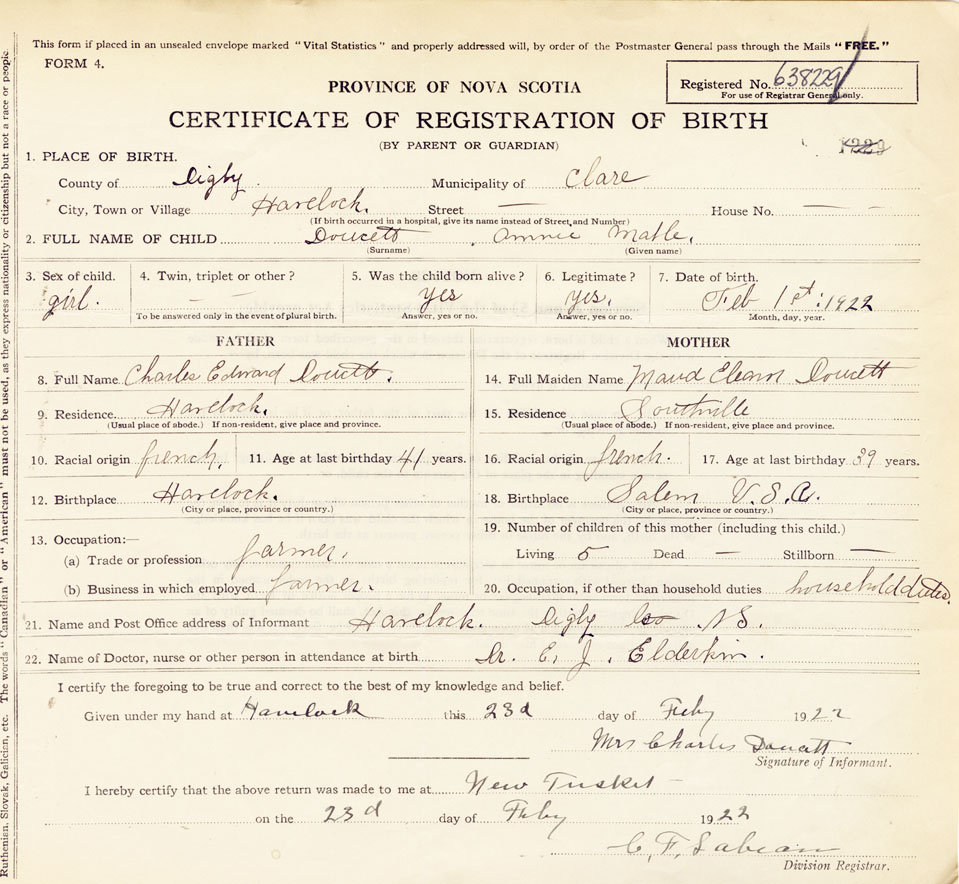 This form if placed in an unsealed envelope marked "Vital Statistics" and properly addressed will, by order of the Postmaster General pass through the Mails "FREE."
FORM 4.
Registered No. 638229
For use of Registrar General only.
PROVINCE OF NOVA SCOTIA
CERTIFICATE OF REGISTRATION OF BIRTH
(BY PARENT OR GUARDIAN)
1. PLACE OF BIRTH.
County of Digby Municipality of Clare
City, Town or Village Havelock. Street — House No. —
(If birth occurred in a hospital, give its name instead of Street and Number)
2. FULL NAME OF CHILD Doucett, Annie Mable.
(Surname) (Given name)
3. Sex of child. 4. Twin, triplet or other? 5. Was the child born alive? 6. Legitimate? 7. Date of birth.
girl. — — yes yes. Feb 1st. 1922
To be answered only in the event of plural birth. Answer, yes or no. Answer, yes or no. Month, day, year.
FATHER MOTHER
8. Full Name Charles Edward Doucett. 14. Full Maiden Name Maud Doucett
9. Residence Havelock. 15. Residence Southville
(Usual place of abode.) If non-resident, give place and province. (Usual place of abode.) If non-resident, give place and province.
10. Racial origin french. 11. Age at last birthday 41 years. 16. Racial origin french. 17. Age at last birthday 39 years.
12. Birthplace Havelock. 18. Birthplace Salem U.S.A.
(City or place, province or country.) (City or place, province or country.)
13. Occupation:— 19. Number of children of this mother (including this child.)
(a) Trade or profession farmer. Living 5 Dead — Stillborn —
(b) Business in which employed farmer. 20. Occupation, if other than household duties household duties.
21. Name and Post Office address of Informant Havelock. Digby Co N.S.
22. Name of Doctor, nurse or other person in attendance at birth Dr. E. J. Elderkin.
I certify the foregoing to be true and correct to the best of my knowledge and belief.
Given under my hand at Havelock this 23d day of Feby 1922
Mrs Charles Doucett
Signature of Informant.
I hereby certify that the above return was made to me at New Tusket
on the 23d day of Feby 1922
C. F. Sabean
Division Registrar.
Ruthenian, Slovak, Galician, etc. The words "Canadian" or "American" must not be used, as they express nationality or citizenship but not a race or people.